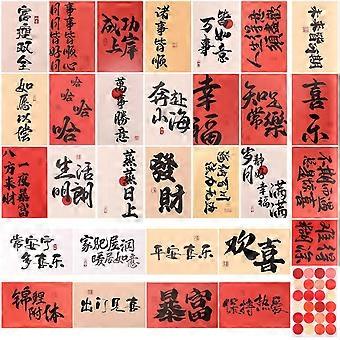 富瘦双全
成功
上岸
诸事皆顺
万事
皆如意
如愿以偿
哈
哈
哈
萬事勝意
奔赴
山海
幸福
知足
常樂
喜乐
一夜暴富
八方来财
生活
明朗
蒸蒸日上
發財
幸福
满满
常安宁
多喜乐
家肥屋润
平安喜乐
欢喜
锦鲤
附体
出门见喜
暴富
保持热爱